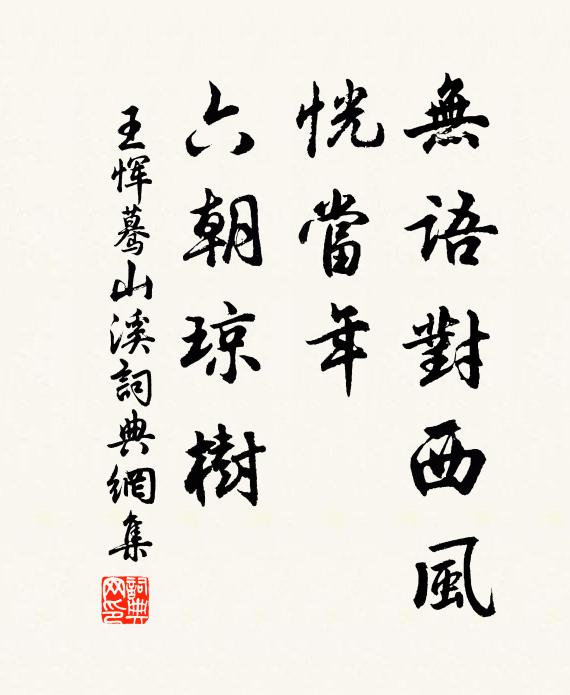 無語對西風
恍當年
六朝琼樹
王恽驀山溪詞典網集
詞典網印